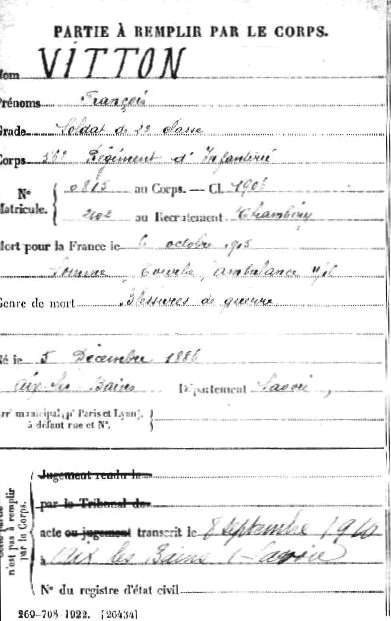 PARTIE À REMPLIR PAR LE CORPS.
Nom VITTON
Prénoms François
Grade Soldat de 2e classe
Corps 56e Régiment d'Infanterie
N° Matricule. 0815 au Corps. — Cl. 1906
au Recrutement Chambéry
Mort pour la France le 6 octobre 1915
Somme ambulance
Genre de mort Blessures de guerre
Né le 5 Décembre 1886
Aix les Bains Département Savoie
Arr' municipal (p' Paris et Lyon),
à défaut rue et N°.
Cette partie n'est pas à remplir par le Corps.
Jugement rendu le
par le Tribunal de
acte ou jugement transcrit le 8 septembre
à Aix les Bains (Savoie
N° du registre d'état civil
269-708 1922. [26434]